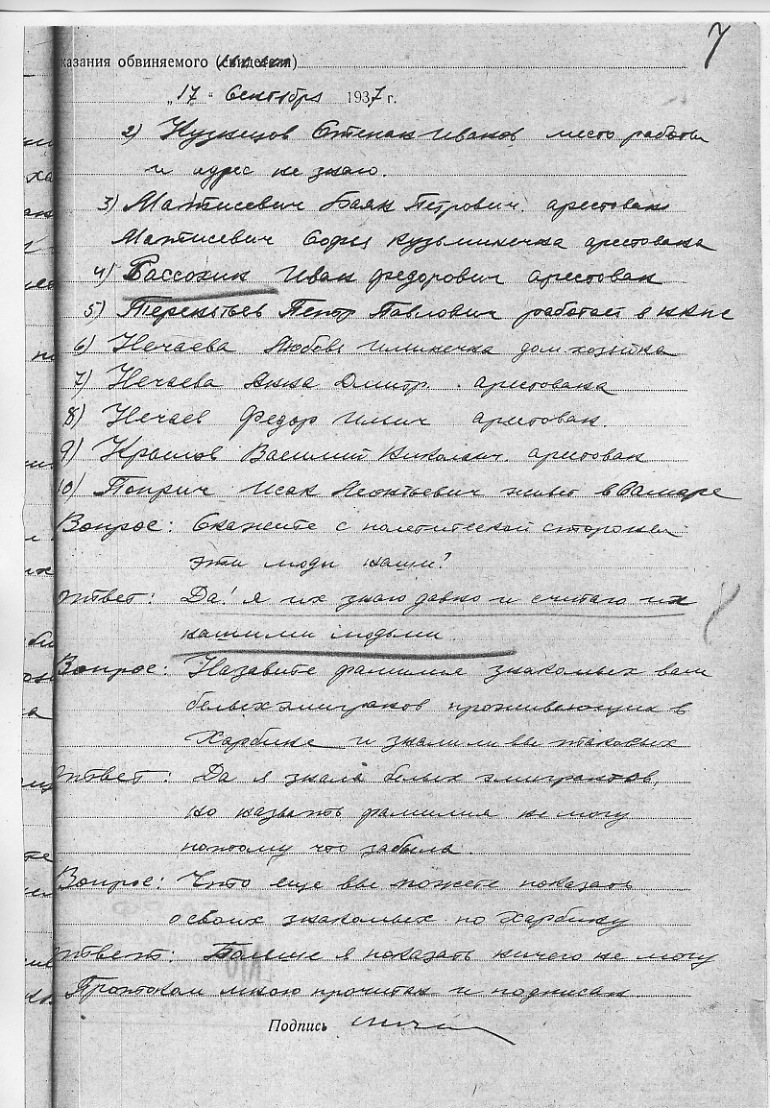 7
казания обвиняемого (свидетеля)
„17" Сентября 1937 г.
2) Кузнецов Степан Иванов. место работы
и адрес не знаю.
3) Матисевич Баян Петрович. арестован
Матисевич Софья Кузьминечна арестована
4) Бассокин Иван Федорович арестован
5) Терентьев Петр Павлович работает в НКПС
6) Нечаева Любовь Илинечна домхозяйка
7) Нечаева Анна Дмитр. арестована
8) Нечаев Федор Ильич арестован.
9) Краслов Василий Николаич. арестован
10) Поприч Исак Леонтьевич живет в Самаре
Вопрос: Скажите с полетической стороны
эти люди наши?
Ответ: Да! я их знаю давно и считаю их
нашими людьми.
Вопрос: Назавите фамилия знакомых вам
белых эмигранов проживающих в
Харбине и знали ли вы таковых
Ответ: Да я знала белых эмигрантов,
но назвать фамилия не могу
потому что забыла.
Вопрос: Что еще вы можете показать
о своих знакомых по Харбину
Ответ: Больше я показать ничего не могу
Протокол мною прочитан и подписан.
Подпись